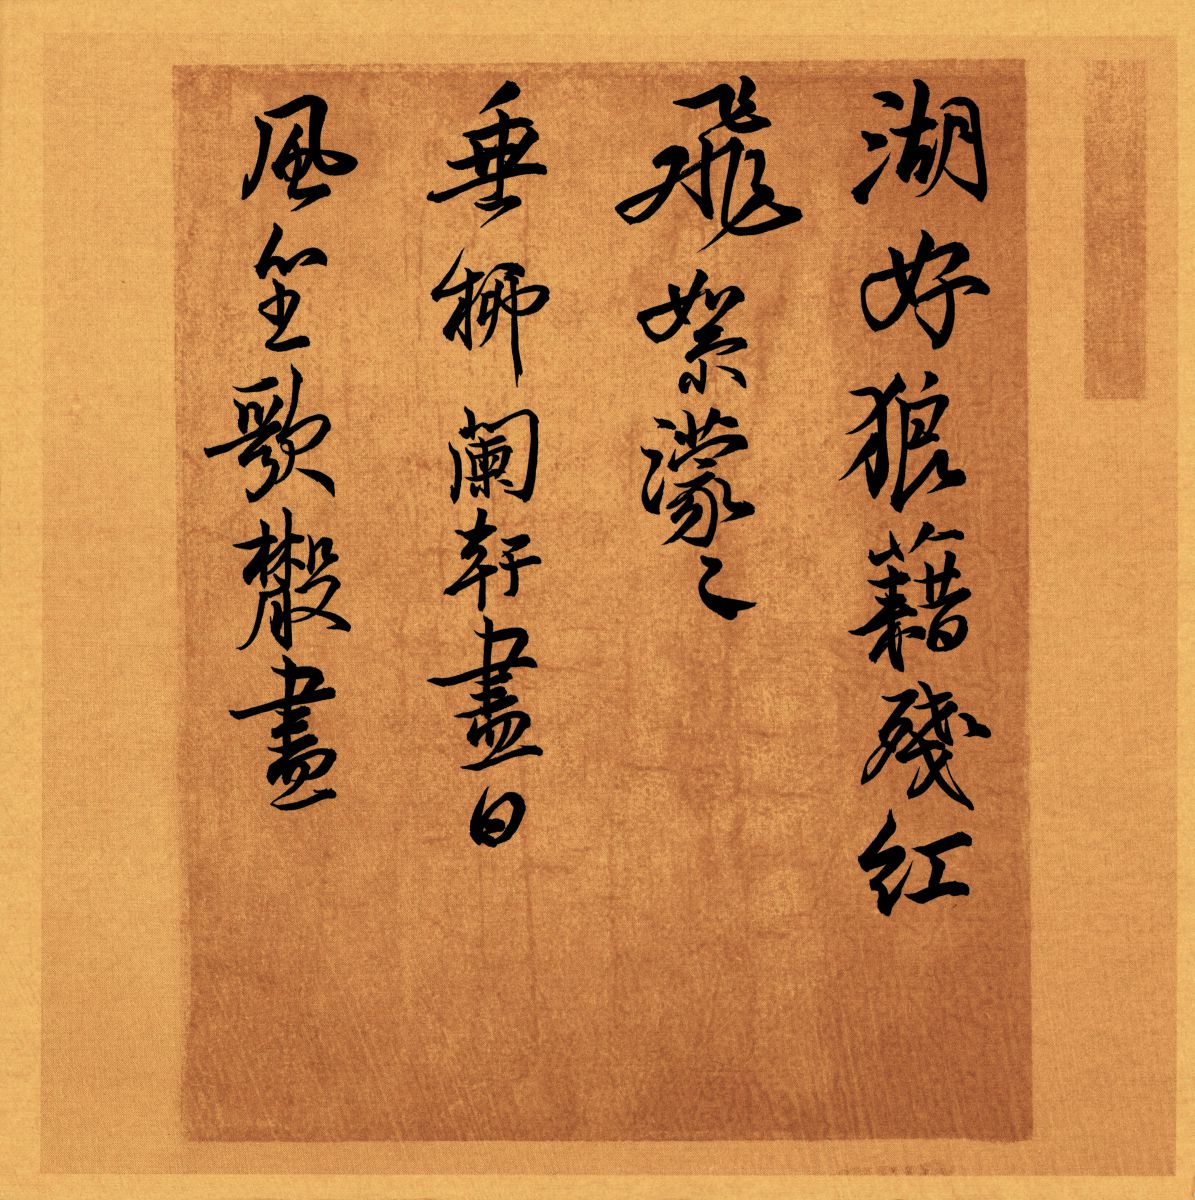 湖好狼藉殘紅
飛絮濛々
垂柳闌幹盡日
風笙歌散盡